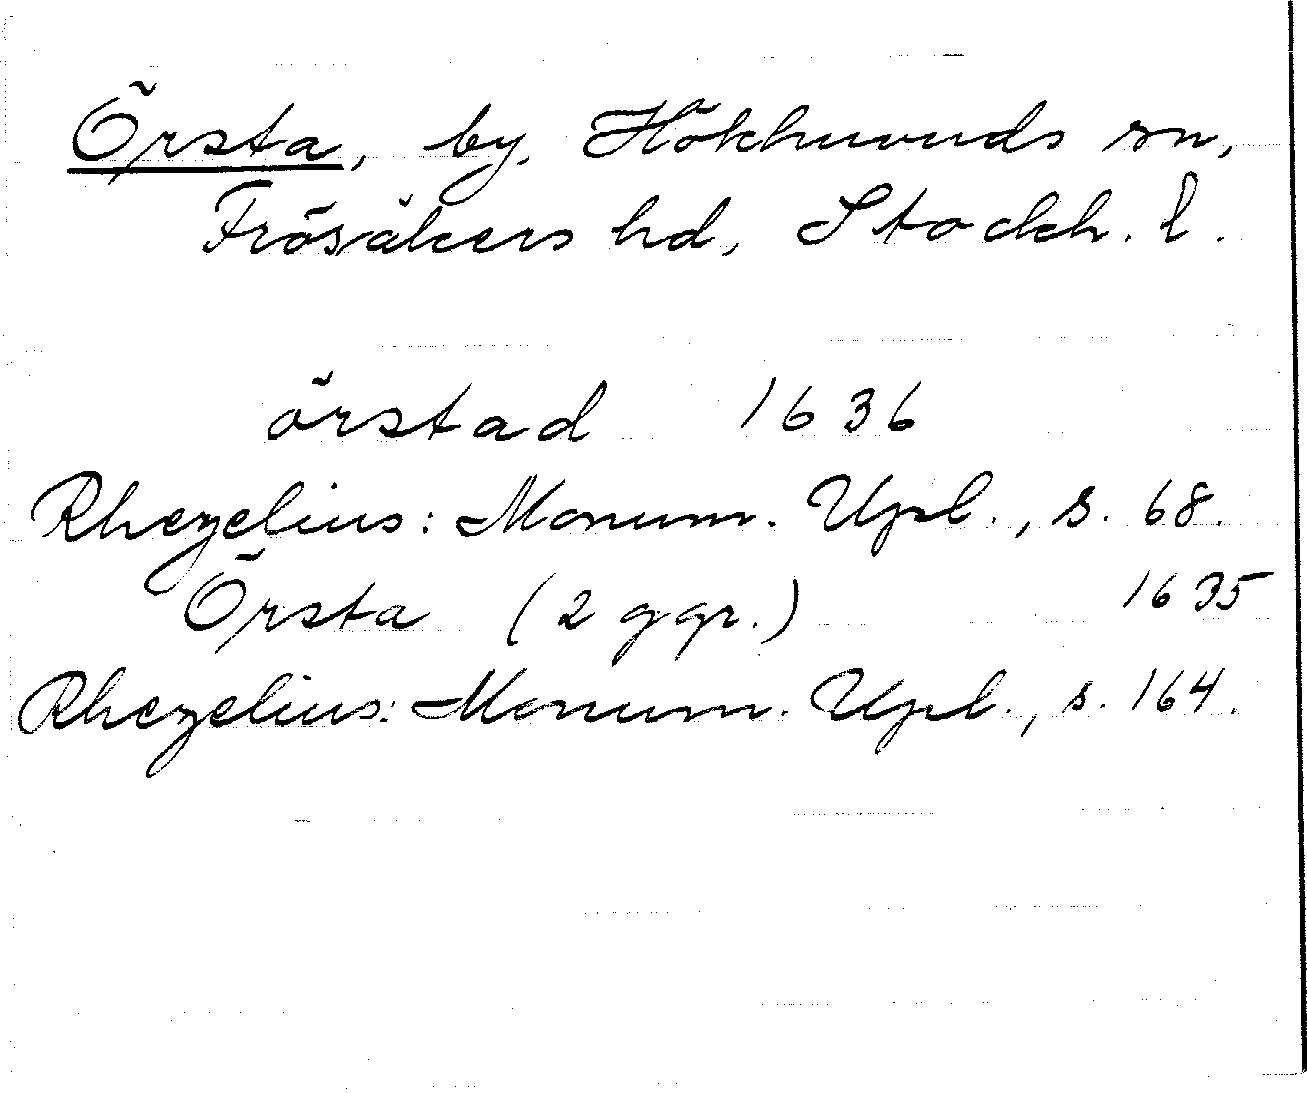 Örsta, by, Hökhuvuds sn,
Frösåkers hd, Stockh. l.
örstad 1636
Rhezelius: Monum. Upl., s. 68.
Örsta (2 ggr.) 1635
Rhezelius: Monum. Upl., s. 164.